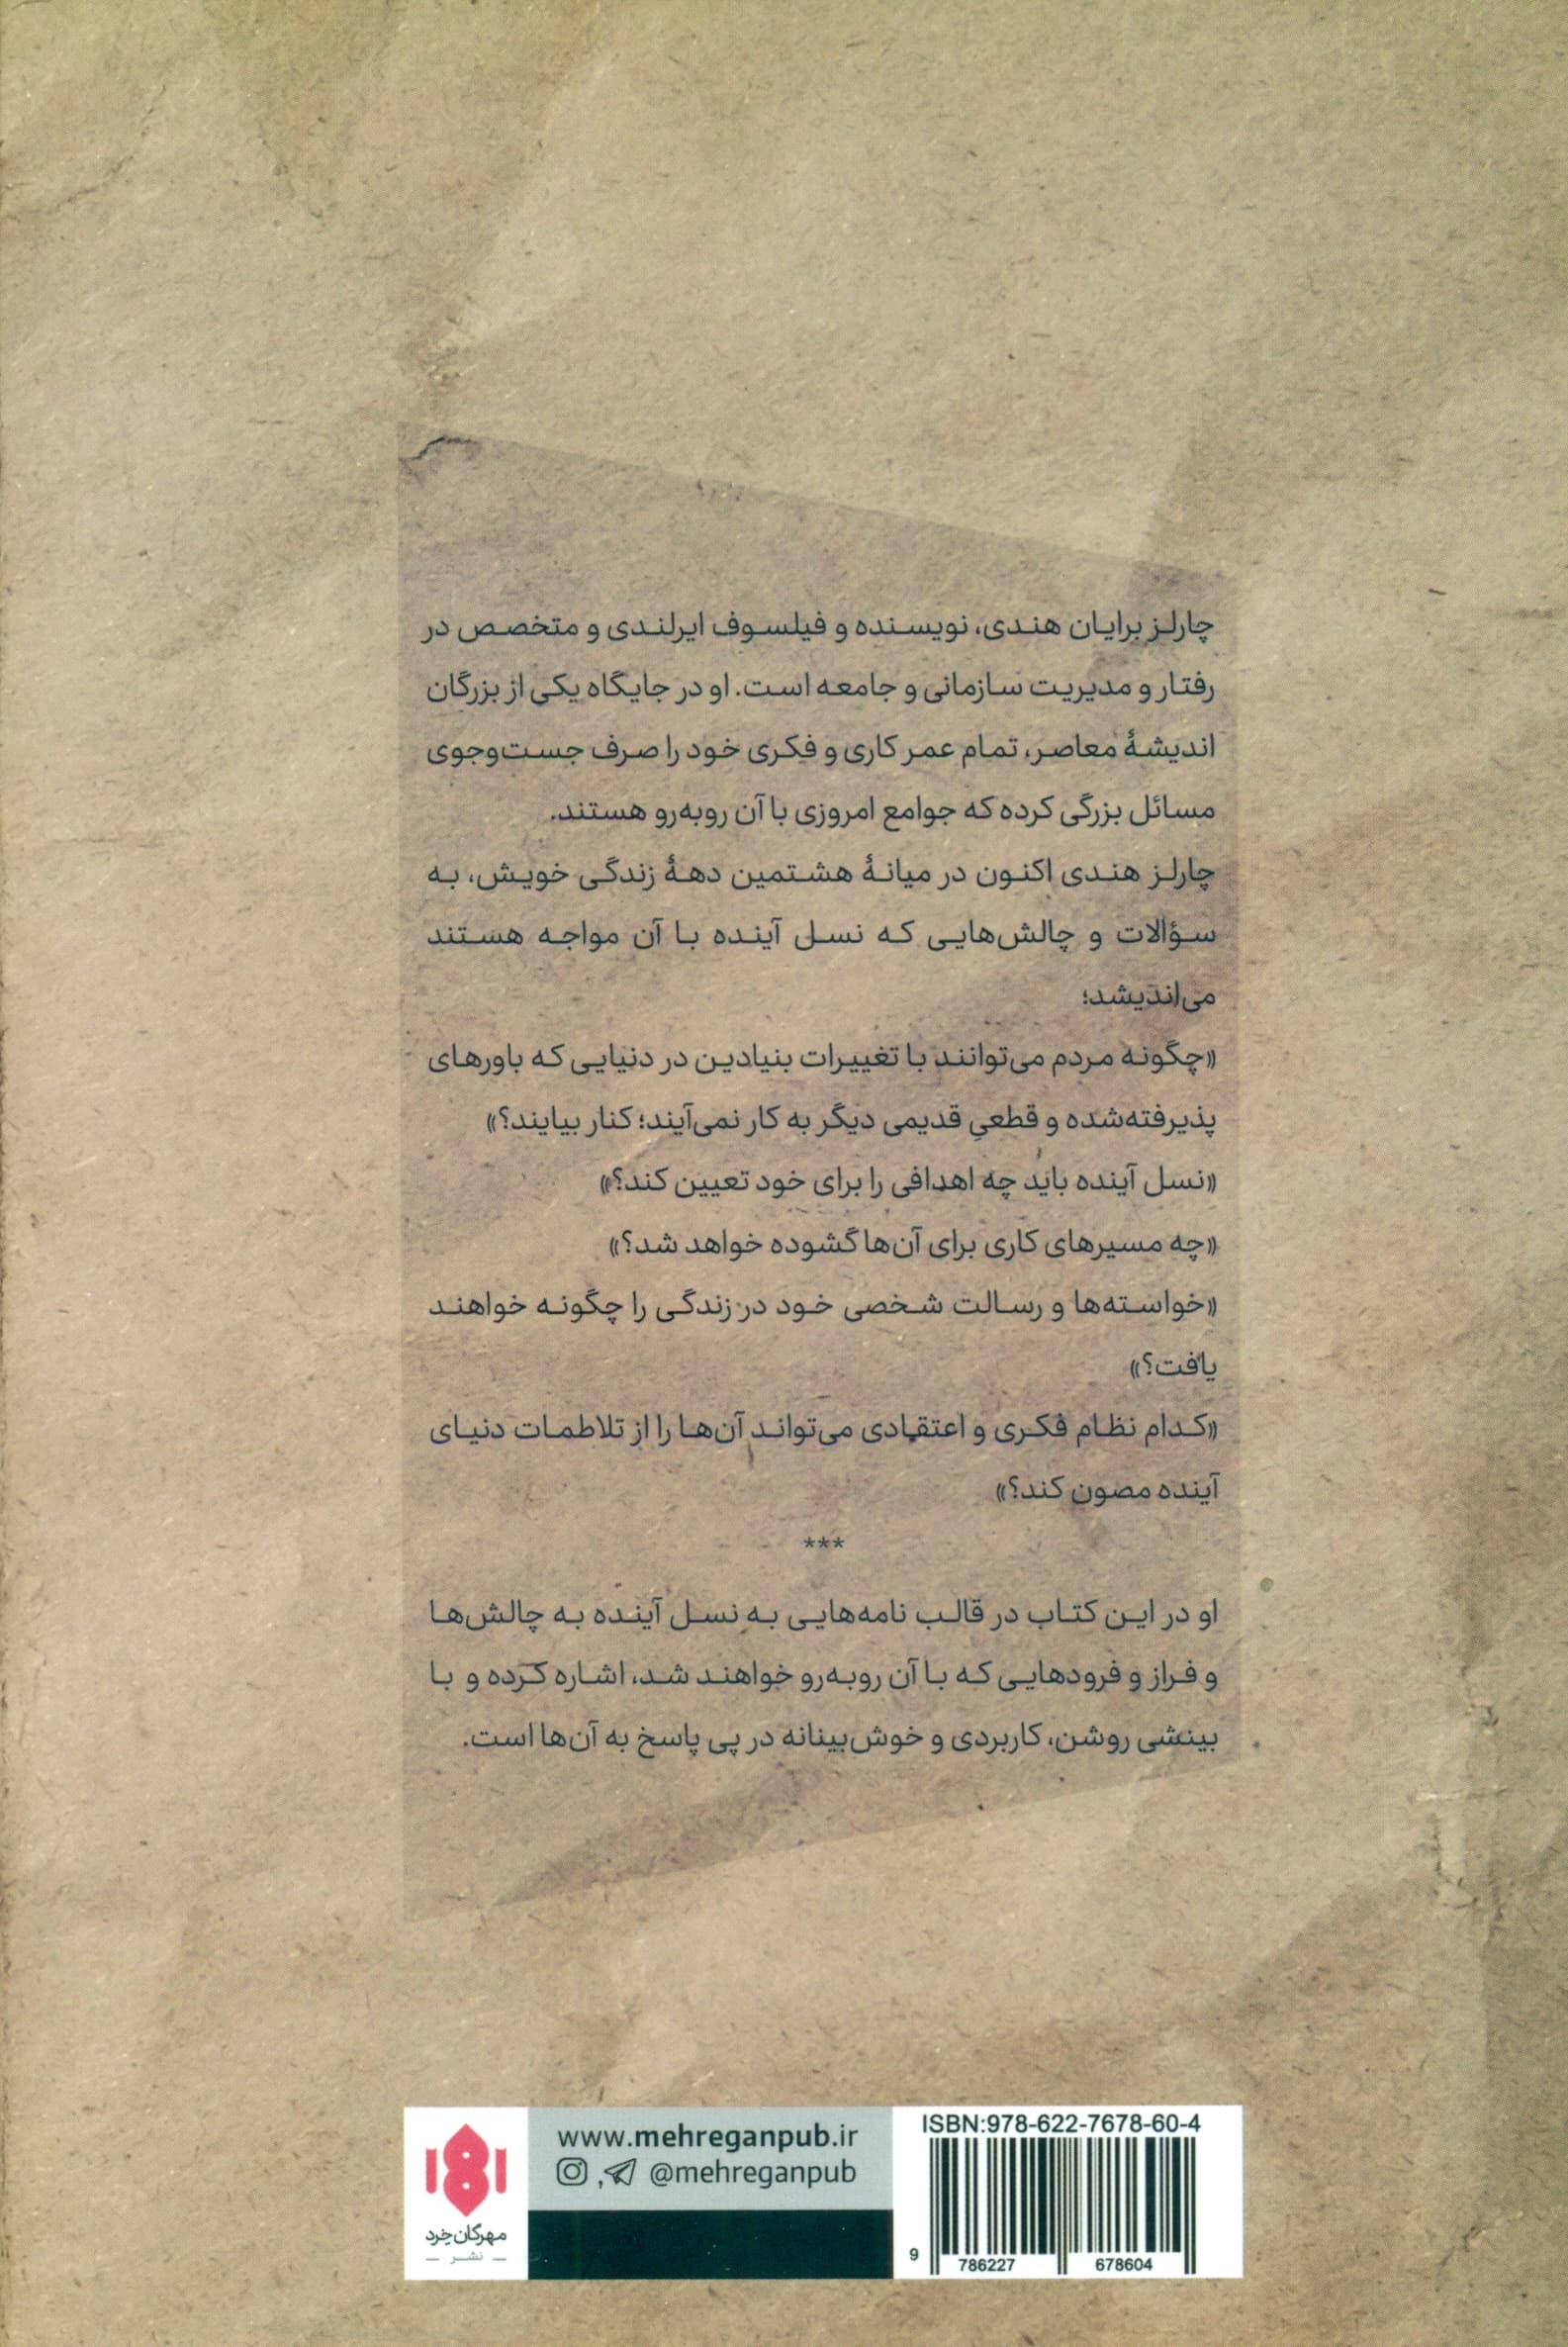 چارلز برایان هندی، نویسنده و فیلسوف ایرلندی و متخصص در
رفتار و مدیریت سازمانی و جامعه است. او در جایگاه یکی از بزرگان
اندیشهٔ معاصر، تمام عمر کاری و فکری خود را صرف جست‌وجوی
مسائل بزرگی کرده که جوامع امروزی با آن روبه‌رو هستند.
چارلز هندی اکنون در میانهٔ هشتمین دههٔ زندگی خویش، به
سؤالات و چالش‌هایی که نسل آینده با آن مواجه هستند
می‌اندیشد؛
«چگونه مردم می‌توانند با تغییرات بنیادین در دنیایی که باورهای
پذیرفته‌شده و قطعیِ قدیمی دیگر به کار نمی‌آیند؛ کنار بیایند؟»
«نسل آینده باید چه اهدافی را برای خود تعیین کند؟»
«چه مسیرهای کاری برای آن‌ها گشوده خواهد شد؟»
«خواسته‌ها و رسالت شخصی خود در زندگی را چگونه خواهند
یافت؟»
«کدام نظام فکری و اعتقادی می‌تواند آن‌ها را از تلاطمات دنیای
آینده مصون کند؟»
***
او در این کتاب در قالب نامه‌هایی به نسل آینده به چالش‌ها
و فراز و فرودهایی که با آن روبه‌رو خواهند شد، اشاره کرده و با
بینشی روشن، کاربردی و خوش‌بینانه در پی پاسخ به آن‌ها است.
مهرگان خرد
نشر
www.mehreganpub.ir
, @mehreganpub
ISBN:978-622-7678-60-4
9 786227 678604